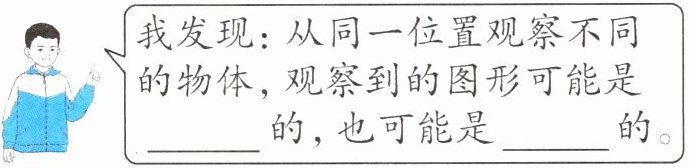 我发现：从同一位置观察不同
的物体，观察到的图形可能是
______的，也可能是______的。